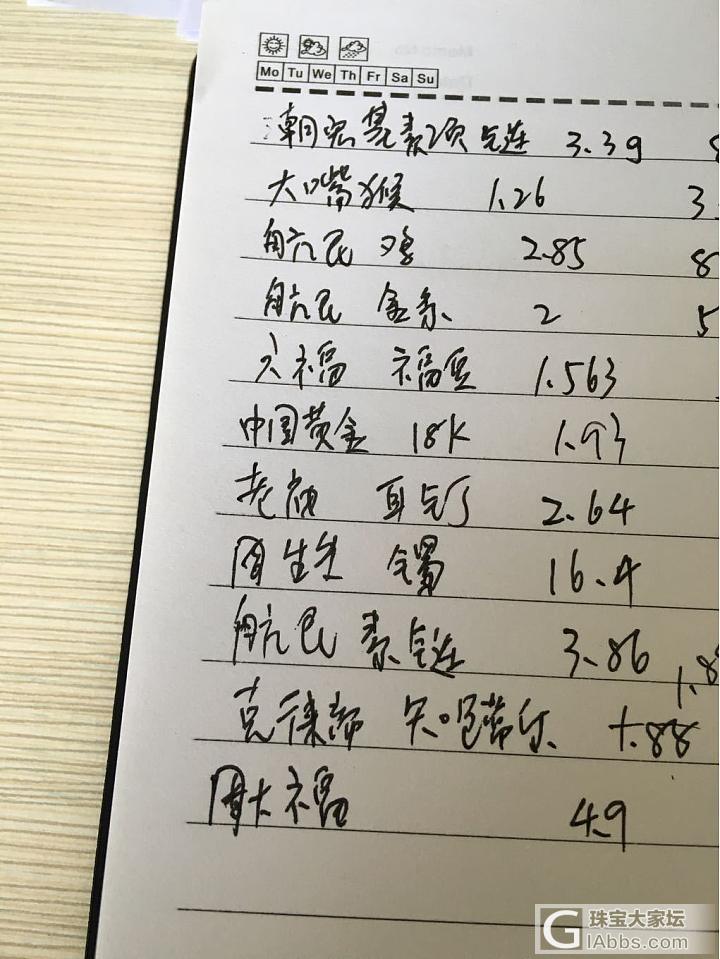 Mo Tu We Th Fr Sa Su
朝宏基素项链 3.39 8
大嘴猴 1.26 3.
航民 鸡 2.85 8
航民 金条 2 5
六福 福豆 1.563
中国黄金 18K 1.93
老庙 耳钉 2.64
周生生 镯 16.4
航民 素链 3.86
1.8
克徕帝 1.88
周大福 4.9
珠宝大家坛
GIAbbs.com